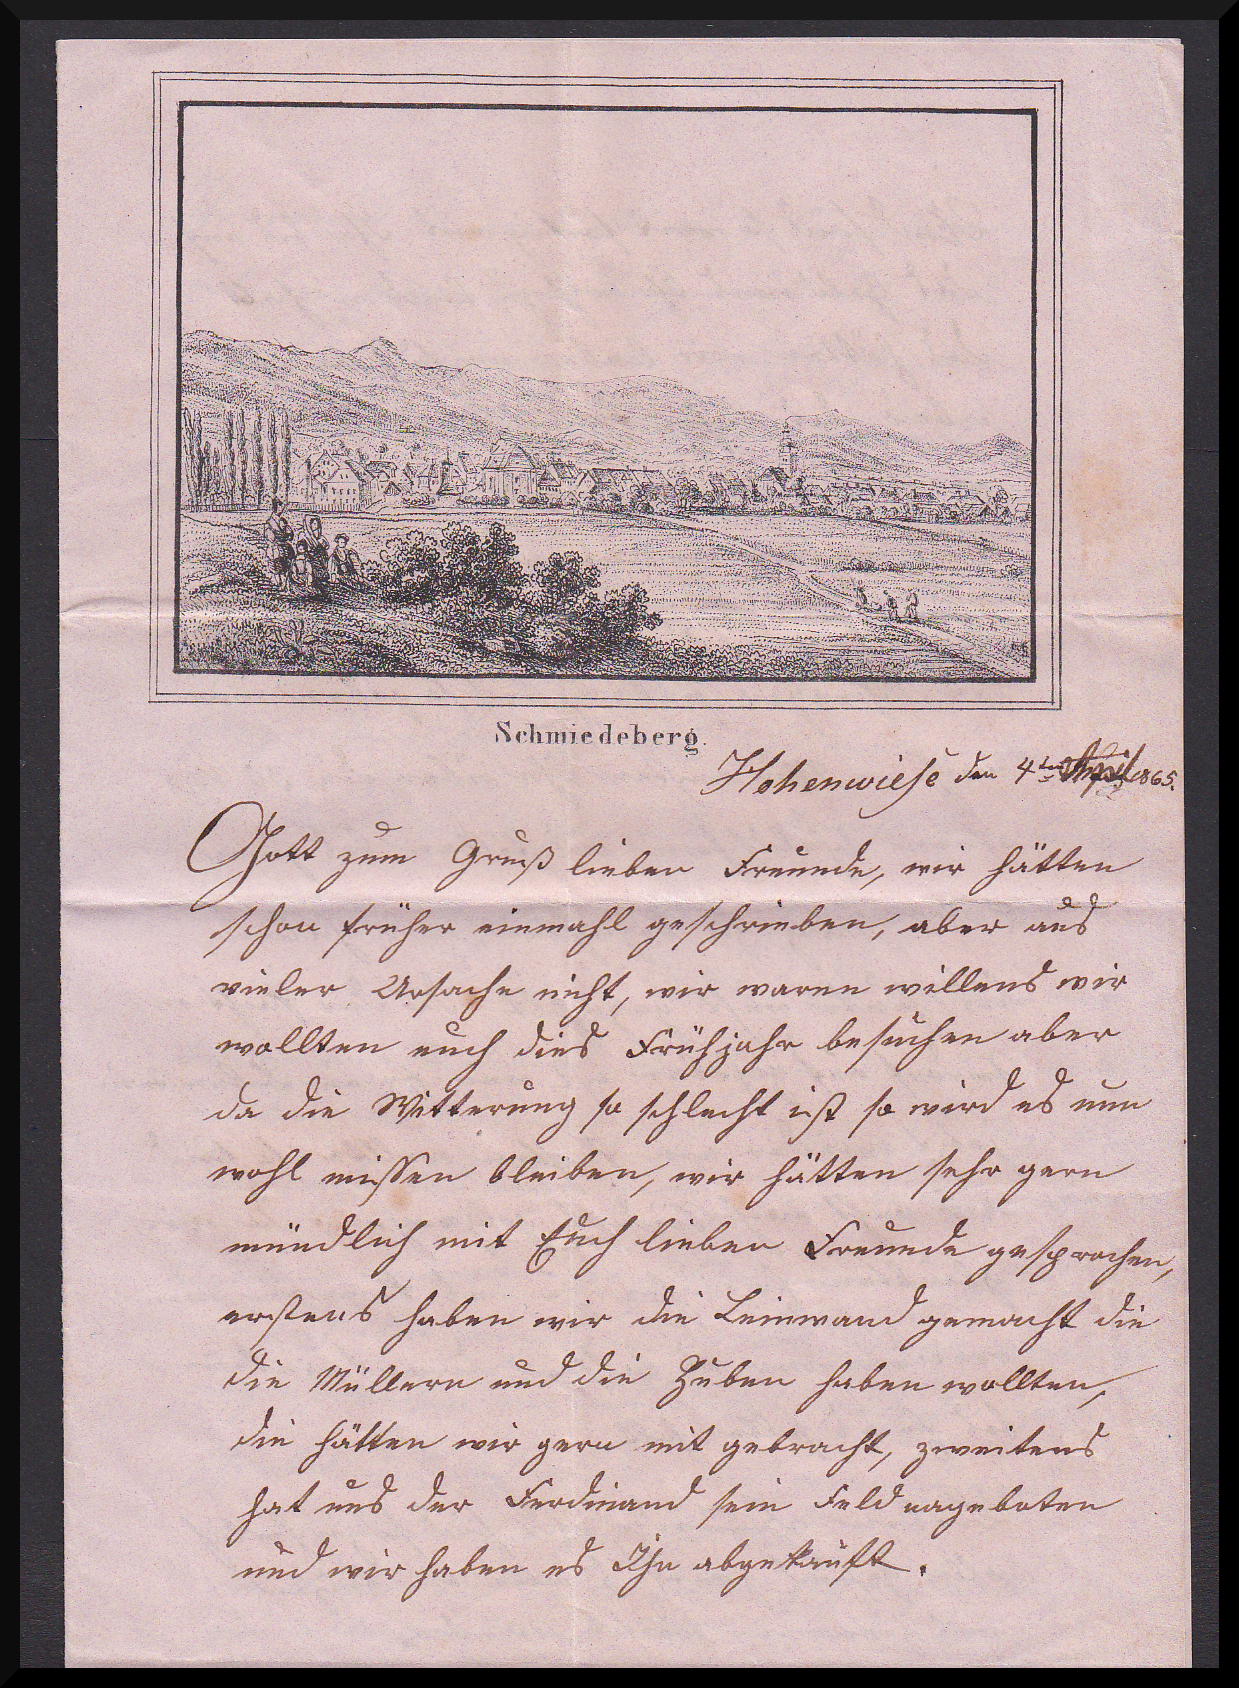 Schmiedeberg.
Hohenwiese den 4ten April 1865.
Gott zum Gruß lieben Freunde, wir hätten
schon früher einmahl geschrieben, aber aus
vieler Ursache nicht, wir waren willens wir
wollten euch dies Frühjahr besuchen aber
da die Witterung so schlecht ist so wird es nun
wohl missen bleiben, wir hätten sehr gern
mündlich mit Euch lieben Freunde gesprochen,
erstens haben wir die Leinwand gemacht die
die Müllern und die Zuben haben wollten,
die hätten wir gern mit gebracht, zweitens
hat uns der Ferdinand sein Feld nageboten
und wir haben es Ihn abgekauft.